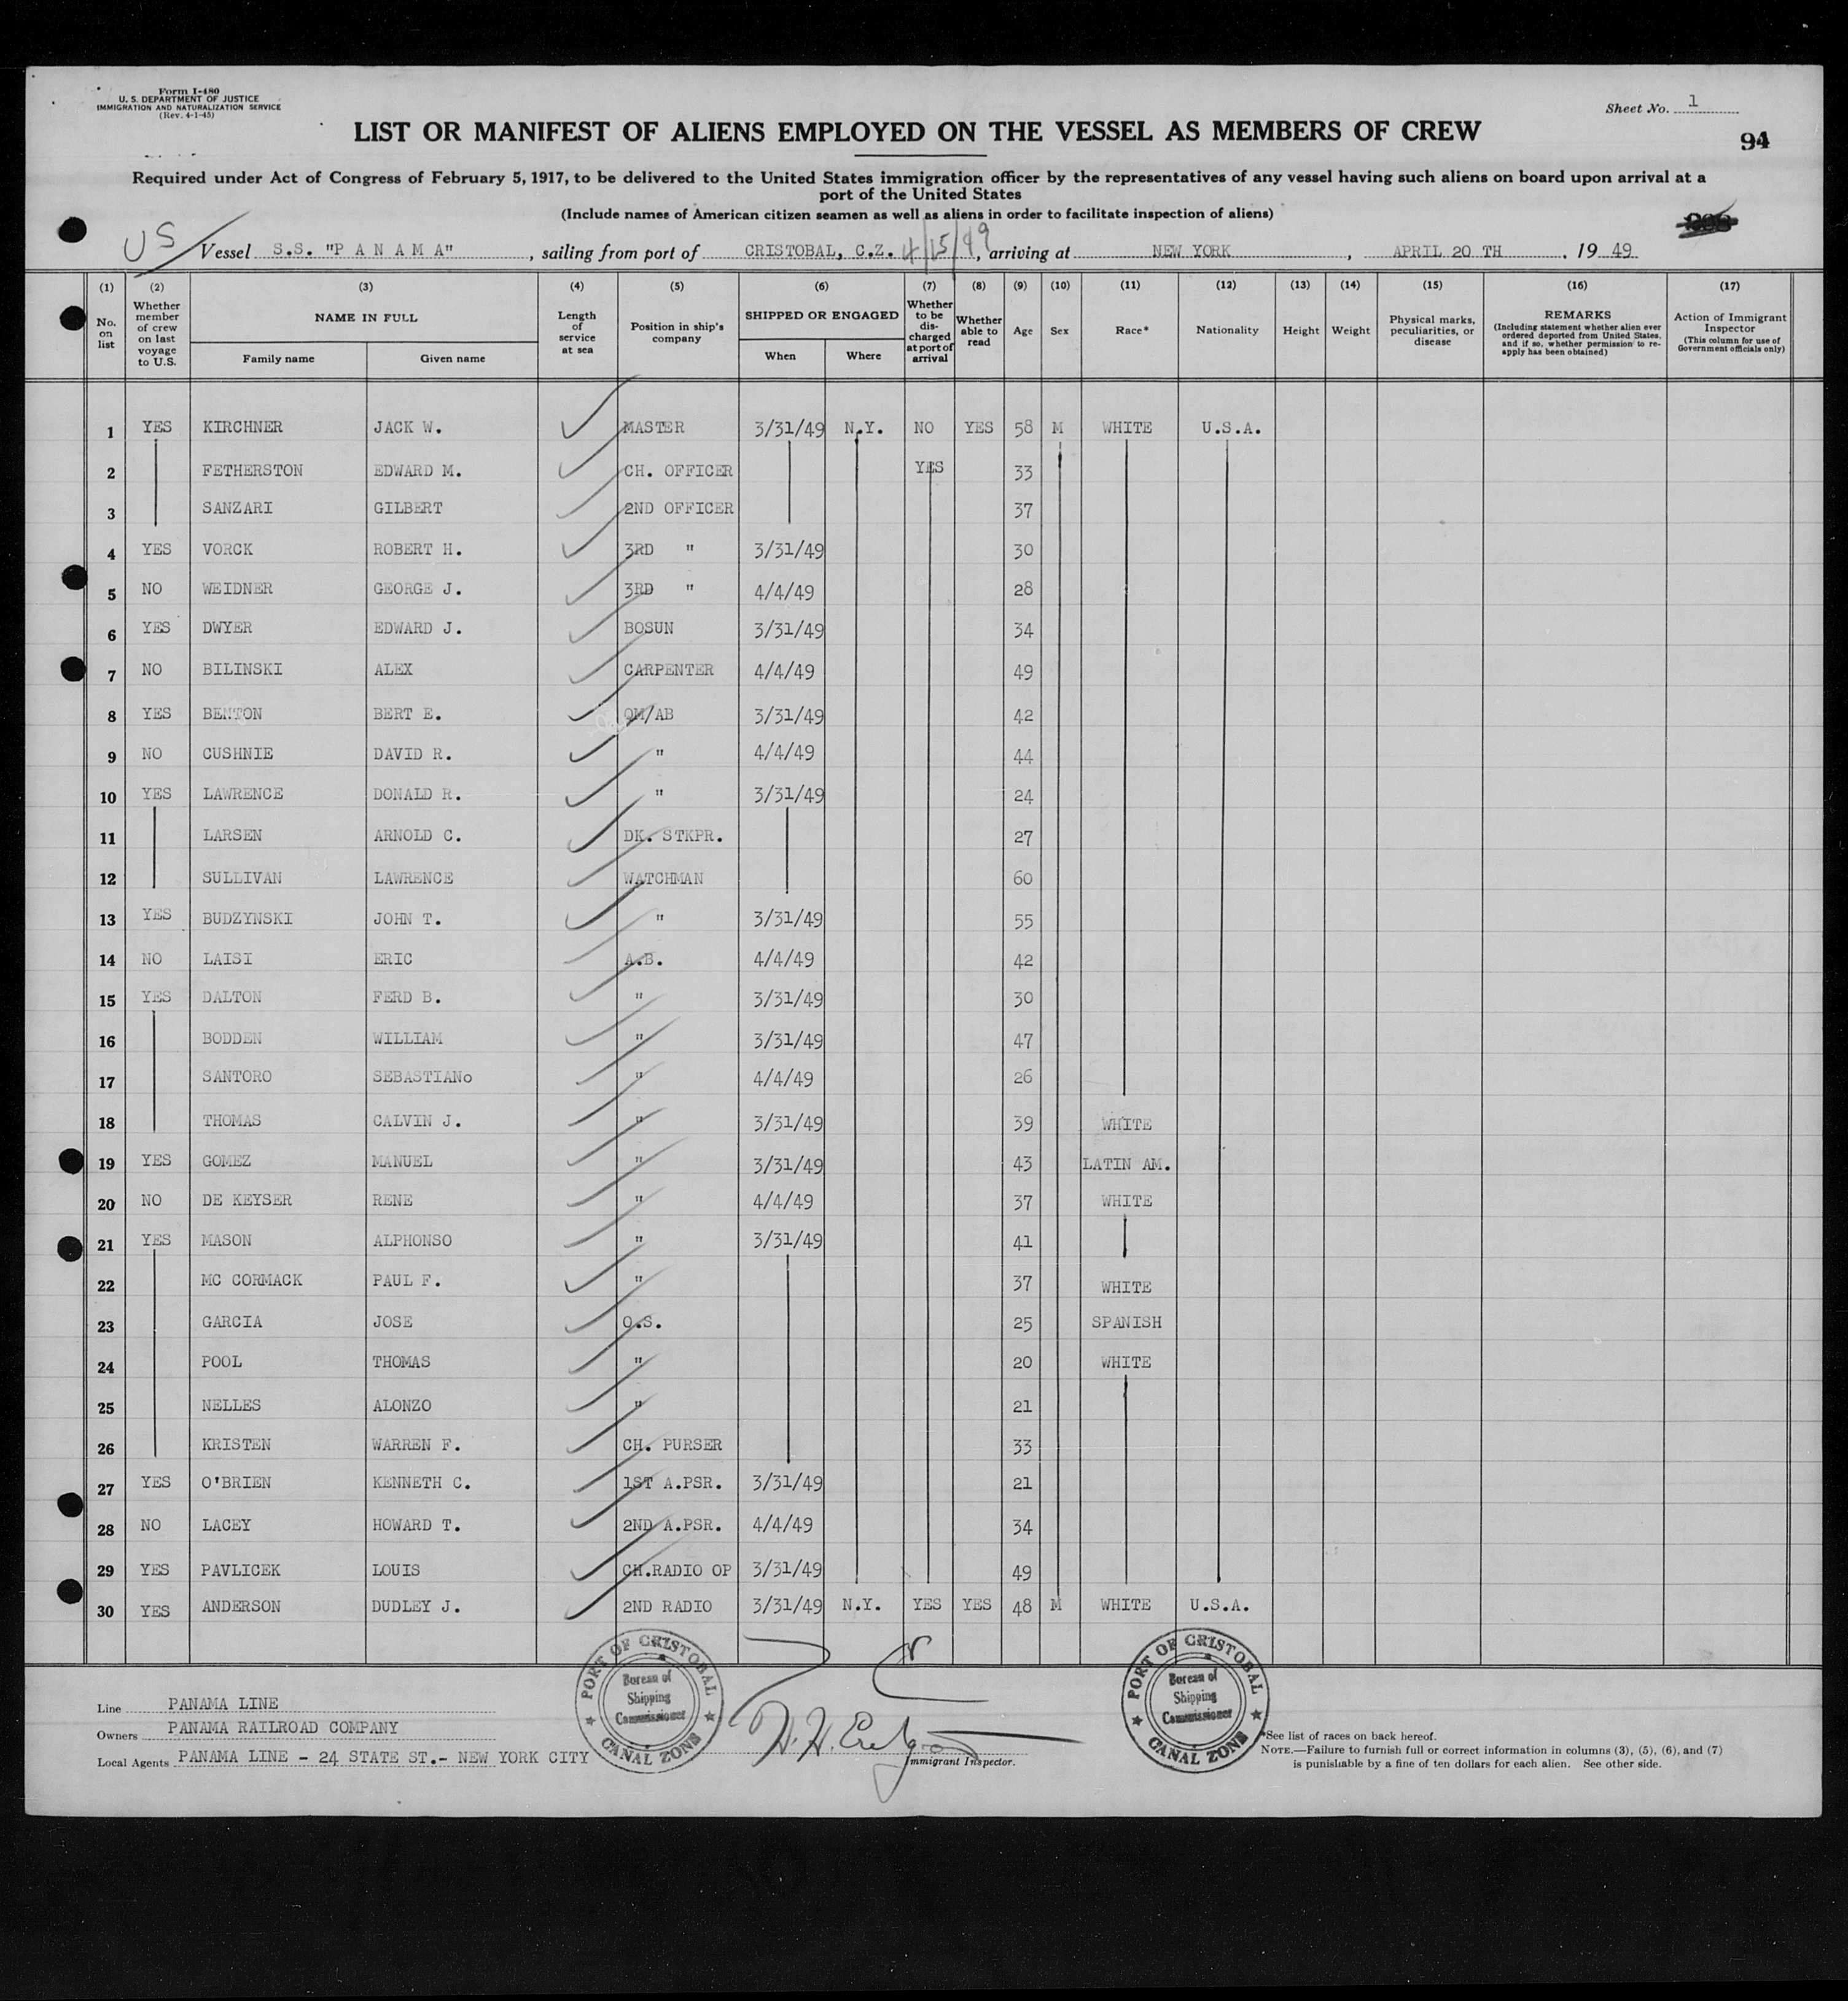 Form I-480
U. S. DEPARTMENT OF JUSTICE
IMMIGRATION AND NATURALIZATION SERVICE
(Rev. 4-1-45)
Sheet No. 1
LIST OR MANIFEST OF ALIENS EMPLOYED ON THE VESSEL AS MEMBERS OF CREW
94
Required under Act of Congress of February 5, 1917, to be delivered to the United States immigration officer by the representatives of any vessel having such aliens on board upon arrival at a
port of the United States
(Include names of American citizen seamen as well as aliens in order to facilitate inspection of aliens)
US Vessel S.S. "P A N A M A", sailing from port of CRISTOBAL, C.Z. 4/15/49, arriving at NEW YORK, APRIL 20 TH, 1949
(1) (2) (3) (4) (5) (6) (7) (8) (9) (10) (11) (12) (13) (14) (15) (16) (17)
No. on list
Whether member of crew on last voyage to U.S.
NAME IN FULL
Family name Given name
Length of service at sea
Position in ship's company
SHIPPED OR ENGAGED
When Where
Whether to be discharged at port of arrival
Whether able to read
Age
Sex
Race*
Nationality
Height
Weight
Physical marks, peculiarities, or disease
REMARKS
(Including statement whether alien ever ordered deported from United States, and if so, whether permission to reapply has been obtained)
Action of Immigrant Inspector
(This column for use of Government officials only)
1 YES KIRCHNER JACK W. MASTER 3/31/49 N.Y. NO YES 58 M WHITE U.S.A.
2 FETHERSTON EDWARD M. CH. OFFICER YES 33
3 SANZARI GILBERT 2ND OFFICER 37
4 YES VORCK ROBERT H. 3RD " 3/31/49 30
5 NO WEIDNER GEORGE J. 3RD " 4/4/49 28
6 YES DWYER EDWARD J. BOSUN 3/31/49 34
7 NO BILINSKI ALEX CARPENTER 4/4/49 49
8 YES BENTON BERT E. QM/AB 3/31/49 42
9 NO CUSHNIE DAVID R. " 4/4/49 44
10 YES LAWRENCE DONALD R. " 3/31/49 24
11 LARSEN ARNOLD C. DK. STKPR. 27
12 SULLIVAN LAWRENCE WATCHMAN 60
13 YES BUDZYNSKI JOHN T. " 3/31/49 55
14 NO LAISI ERIC A.B. 4/4/49 42
15 YES DALTON FERD B. " 3/31/49 30
16 BODDEN WILLIAM " 3/31/49 47
17 SANTORO SEBASTIANo " 4/4/49 26
18 THOMAS CALVIN J. " 3/31/49 39 WHITE
19 YES GOMEZ MANUEL " 3/31/49 43 LATIN AM.
20 NO DE KEYSER RENE " 4/4/49 37 WHITE
21 YES MASON ALPHONSO " 3/31/49 41
22 MC CORMACK PAUL F. " 37 WHITE
23 GARCIA JOSE O.S. 25 SPANISH
24 POOL THOMAS " 20 WHITE
25 NELLES ALONZO " 21
26 KRISTEN WARREN F. CH. PURSER 33
27 YES O'BRIEN KENNETH C. 1ST A.PSR. 3/31/49 21
28 NO LACEY HOWARD T. 2ND A.PSR. 4/4/49 34
29 YES PAVLICEK LOUIS CH.RADIO OP 3/31/49 49
30 YES ANDERSON DUDLEY J. 2ND RADIO 3/31/49 N.Y. YES YES 48 M WHITE U.S.A.
PORT OF CRISTOBAL
Bureau of
Shipping
Commissioner
CANAL ZONE
PORT OF CRISTOBAL
Bureau of
Shipping
Commissioner
CANAL ZONE
Line PANAMA LINE
Owners PANAMA RAILROAD COMPANY
Local Agents PANAMA LINE - 24 STATE ST.- NEW YORK CITY
Immigrant Inspector.
*See list of races on back hereof.
NOTE.—Failure to furnish full or correct information in columns (3), (5), (6), and (7)
is punishable by a fine of ten dollars for each alien. See other side.